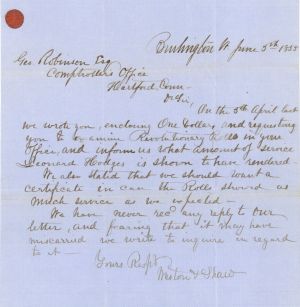 Burlington Vt June 5th 1855
Geo Robinson Esq
Comptrollers Office
Hartford Conn
D Sir
On the 5th April last
we wrote you, enclosing One Dollar, and requesting
you to examine Revolutionary Rolls in your
Office, and inform us what amount of service
Leonard Hodges is shown to have rendered.
We also stated that we should want a
certificate in case the Rolls showed as
much service as we expected —
We have never recd any reply to our
letter, and fearing that it may have
miscarried we write to inquire in regard
to it —
Yours Respt
Weston & Shaw